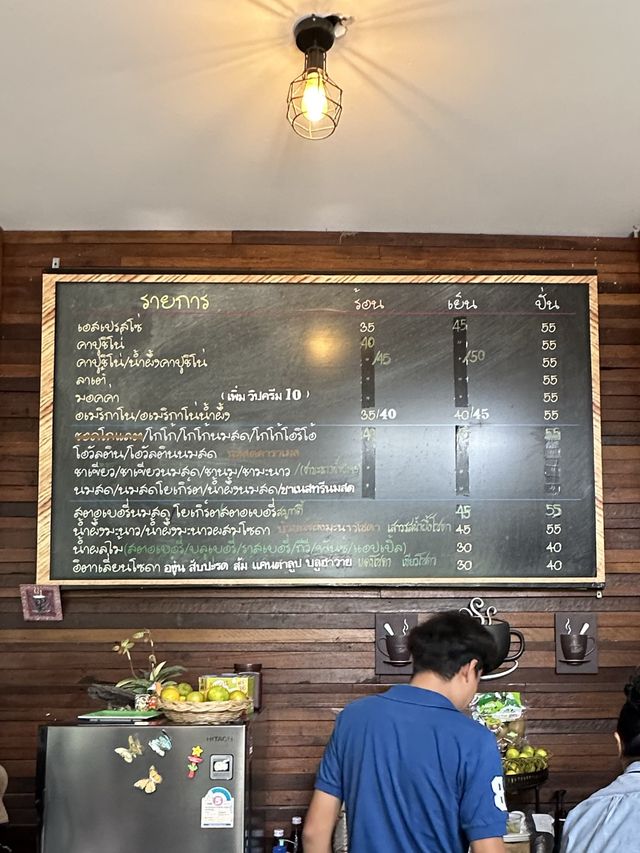 รายการ ร้อน เย็น ปั่น
เอสเปรสโซ่ 35 45 55
คาปูชิโน่ 40 55
คาปูชิโน่/น้ำผึ้งคาปูชิโน่ /45 /50 55
ลาเต้ 55
มอคค่า (เพิ่มวิปครีม 10) 55
อเมริกาโน่/อเมริกาโน่น้ำผึ้ง 35/40 40/45 55
/โกโก้/โกโก้นมสด/โกโก้โอรีโอ้ 40 55
โอวัลติน/โอวัลตินนมสด
ชาเขียว/ชาเขียวนมสด/ชานม/ชามะนาว
นมสด/นมสดโยเกิร์ต/น้ำผึ้งนมสด/ชาเนสทรีนมสด
สตอเบอรี่นมสด โยเกิร์ตสตอเบอรี่สมูทตี้ 45 55
น้ำผึ้งมะนาว/น้ำผึ้งมะนาวผสมโซดา 45 55
น้ำผลไม้(สตอเบอรี่/บลูเบอรี่/ราสเบอรี่/กีวี่/องุ่น/แอปเปิ้ล) 30 40
อิตาเลี่ยนโซดา องุ่น สับปะรด ส้ม แคนตาลูป บลูฮาวาย 30 40
HITACHI
5
8